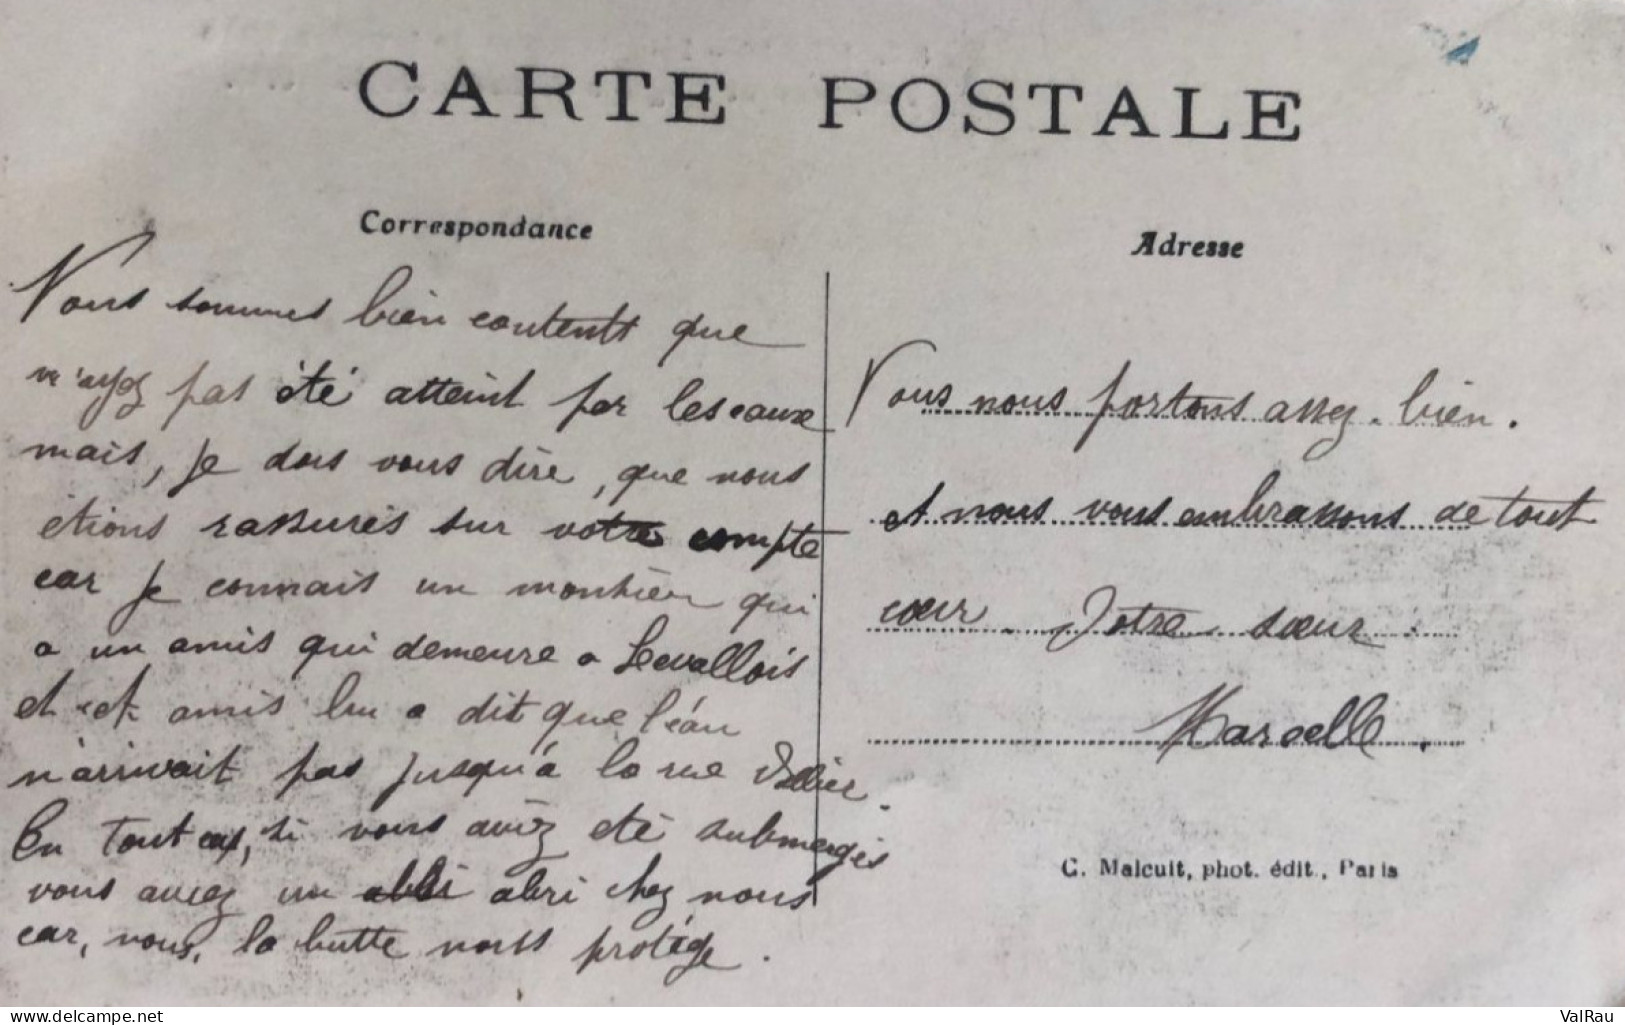 CARTE POSTALE
Correspondance
Nous sommes bien contents que
n'ayez pas été atteint par les eaux
mais, je dois vous dire, que nous
étions rassurés sur votre compte
car je connais un monsieur qui
a un amis qui demeure a Levallois
et cet amis lui a dit que l'eau
n'arrivait pas jusqu'à la rue Vallier.
En tout cas, si vous aviez été submergés
vous aviez un abri chez nous
car, nous, la butte nous protège.
Adresse
Nous nous portons assez bien.
et nous vous embrassons de tout
cœur. Votre sœur
Marcelle.
C. Malcuit, phot. édit., Paris
ValRau
www.delcampe.net